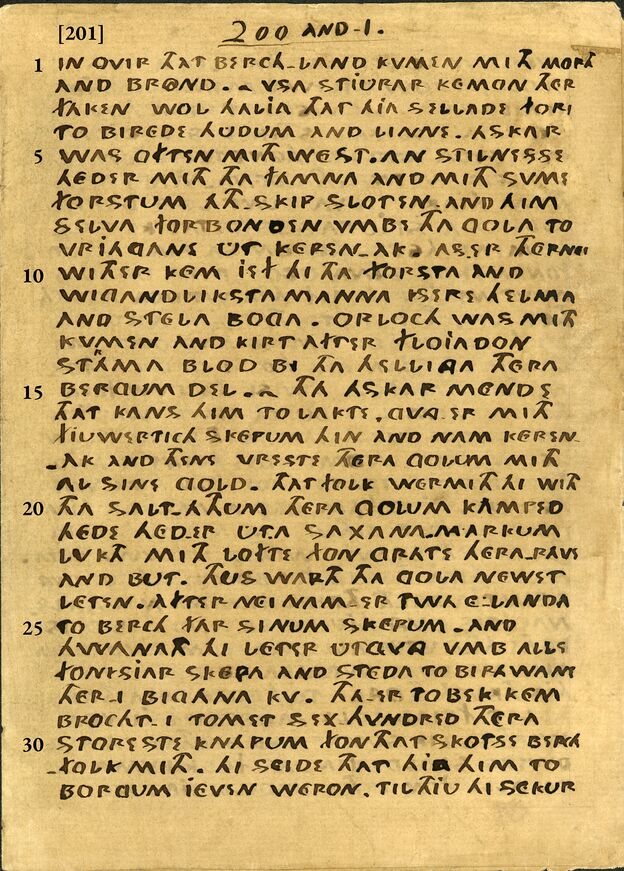 [201] 200 AND-1.
1 IN OVIR THAT BERCH-LAND KVMEN MITH MORTH
AND BROND. ~ VSA STIURAR KEMON THER
FAKEN WOL HALJA THAT HJA SELLADE FORI
TO BIREDE HUDUM AND LINNE. ASKAR
5 WAS OFTEN MITH WEST. AN STILNESSE
HEDER MITH THA FAMNA AND MITH SVME
FORSTUM ATH-SKIP SLOTEN. AND HIM
SELVA FORBONDEN VMBE THA GOLA TO
VRIAGANE UT KEREN-AK. AS-ER THERNEI
10 WITHER KEM JEF HI THA FORSTA AND
WIGANDLIKSTA MANNA YSERE HELMA
AND STELA BOGA. ORLOCH WAS MITH
KVMEN AND KIRT AFTER FLOJADON
STRAMA BLOD BI THA HELLINGA THERA
15 BERGUM DEL. ~ THA ASKAR MENDE
THAT KANS HIM TOLAKTE. GVNG-ER MITH
FJUWERTICH SKEPUM HIN AND NAM KEREN-
-AK AND THENE VRESTE THERA GOLUM MITH
AL SINE GOLD. THAT FOLK WERMITH HI WITH
20 THA SALT-ATHUM THERA GOLUM KAMPED
HEDE HED-ER UTA SAXANA-MARKUM
LVKTH MITH LOFTE FON GRATE HERA-RAVE
AND BUT. THUS WARTH THA GOLA NEWET
LETEN. AFTERNEI NAM-ER TWA E-LANDA
25 TO BERCH FAR SINUM SKEPUM. AND
HWANATH HI LETER UTGVNG VMB ALLE
FONYSIAR SKEPA AND STEDA TO BIRAWANE
THER-I BIGANA KV. THA-ER TOBEK KEM
BROCHT-I TOMET SEX HVNDRED THERA
30 STORESTE KNAPUM FON THAT SKOTSE BERCH
-FOLK MITH. HI SEIDE THAT HJA HIM TO
BORGUM JEVEN WERON. TIL THJU HI SEKUR